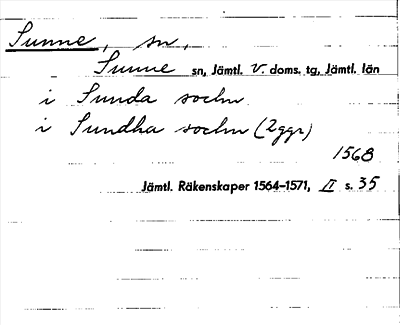 Sunne, sn,
Sunne sn, Jämtl. V. doms. tg, Jämtl. län
i Sunda sochn
i Sundha sochn (2ggr)
1568
Jämtl. Räkenskaper 1564–1571, II s. 35